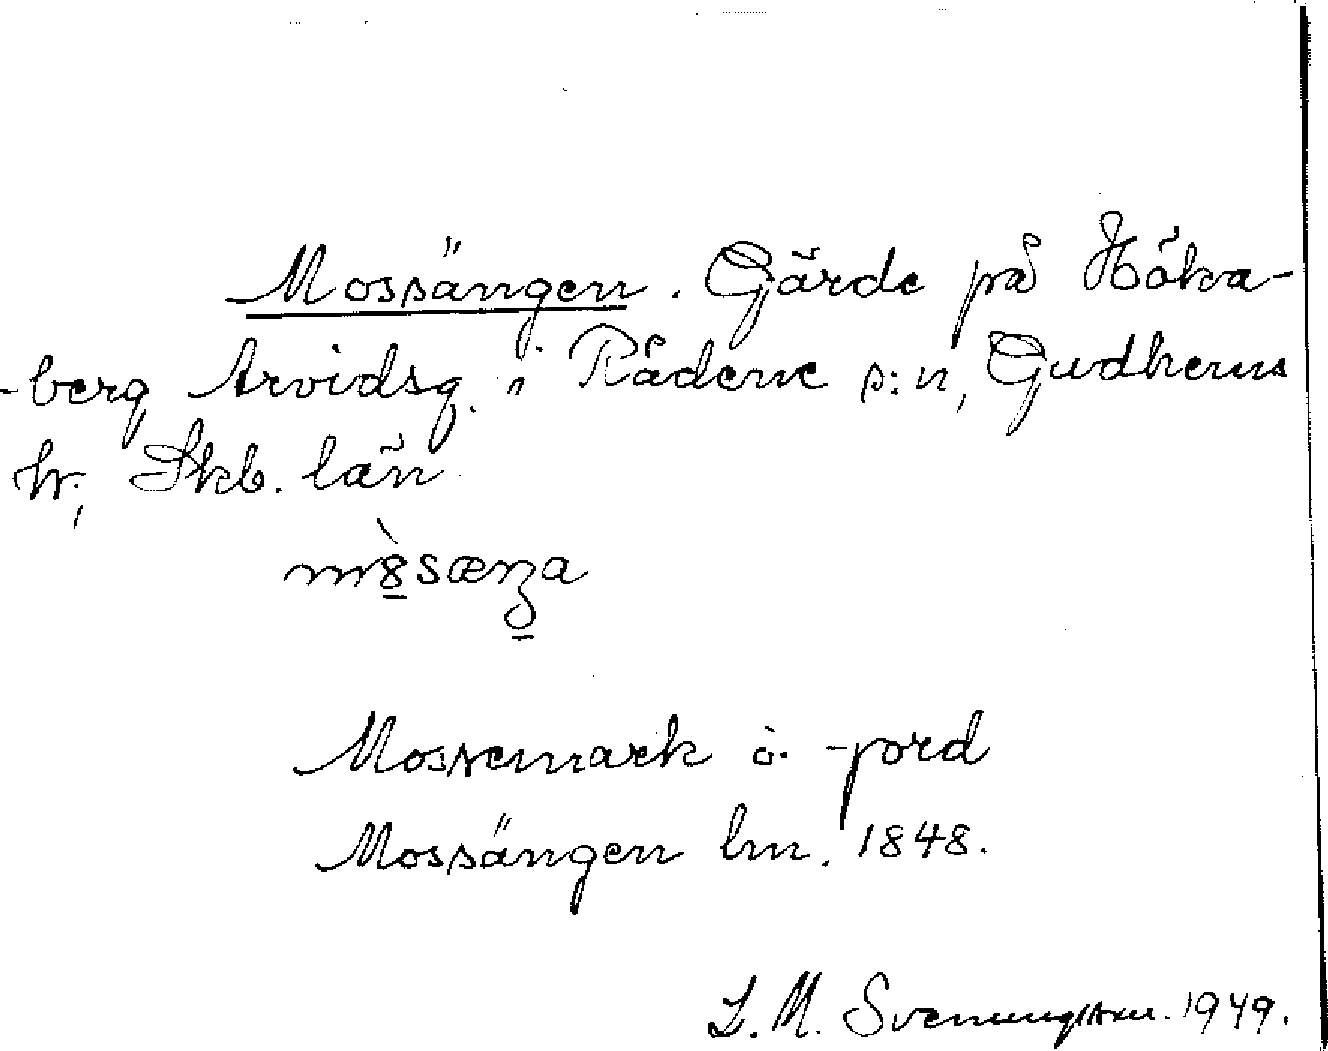 Mossängen. Gärde på Höka-
-berg Arvidsg. i Rådene s:n, Gudhems
hr, Skb. län
mò̤sæŋa
Mossemark o. -jord
Mossängen lm. 1848.
L. M. Svenungsson. 1949.